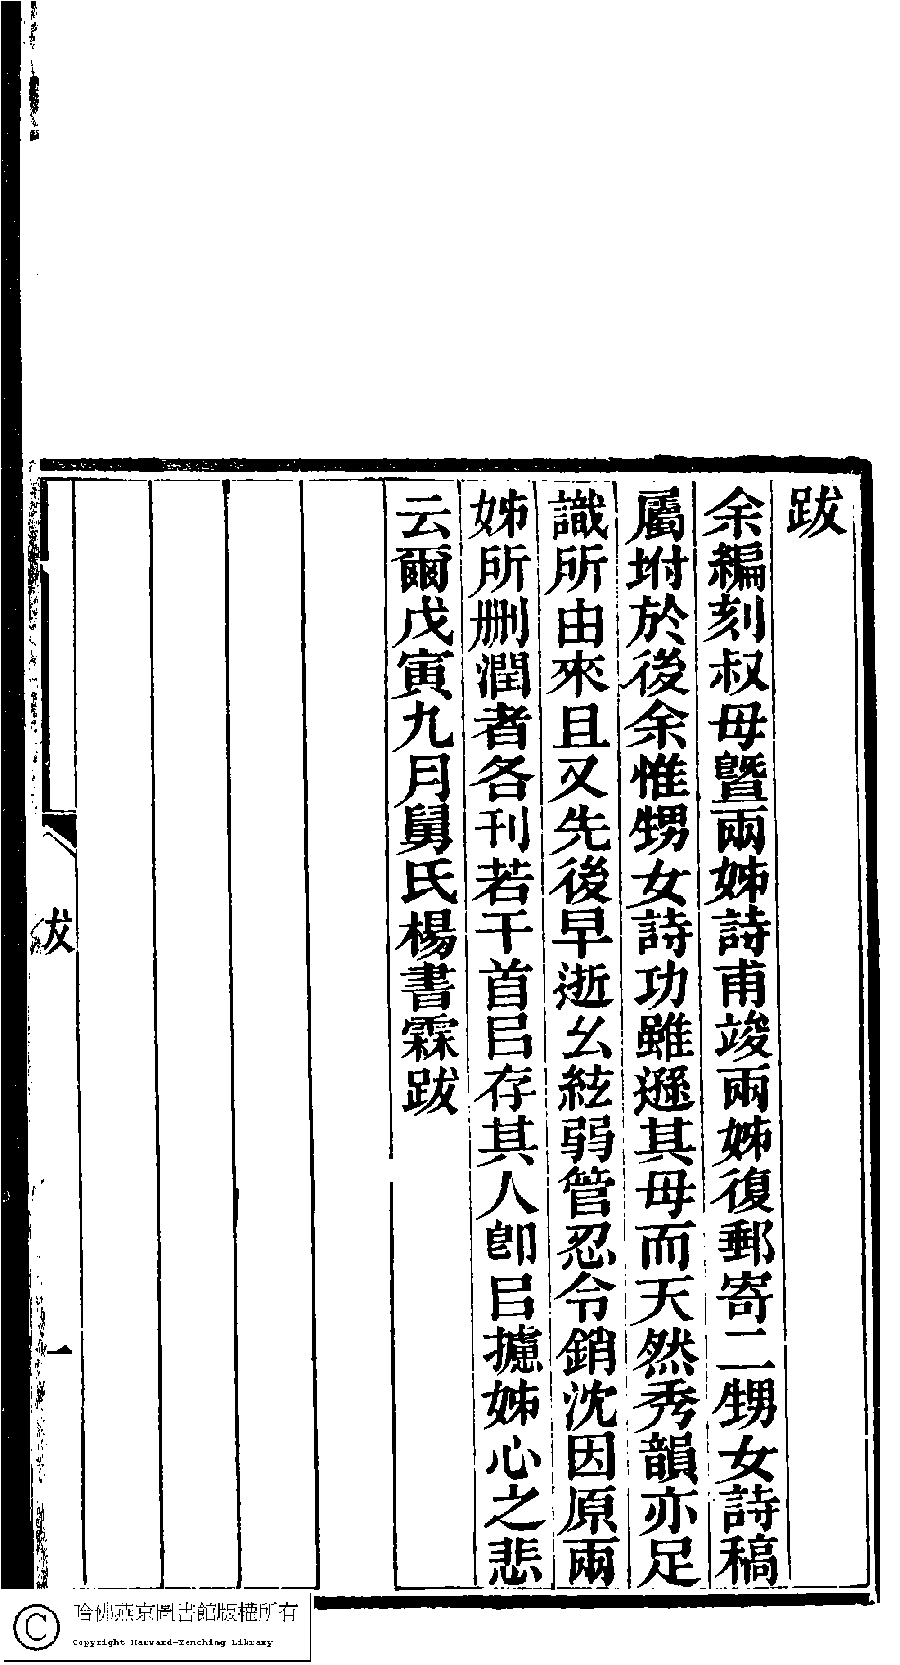 跋
余編刻叔母曁兩姊詩甫竣兩姊復郵寄二甥女詩稿
屬坿於後余惟甥女詩功雖遜其母而天然秀韻亦足
識所由來且又先後早逝幺絃弱管忍令銷沈因原兩
姊所刪潤者各刊若干首㠯存其人卽㠯攄姊心之悲
云爾戊寅九月舅氏楊書霖跋
跋
一
哈佛燕京圖書館版權所有
Copyright Harvard-Yenching Library